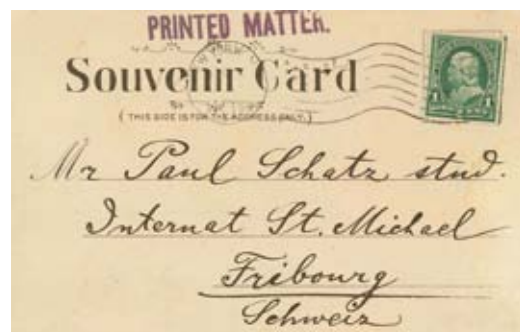 PRINTED MATTER.
Souvenir Card
(THIS SIDE IS FOR THE ADDRESS ONLY.)
Mr Paul Schatz stud.
Internat St. Michael
Fribourg
Schweiz
1 1